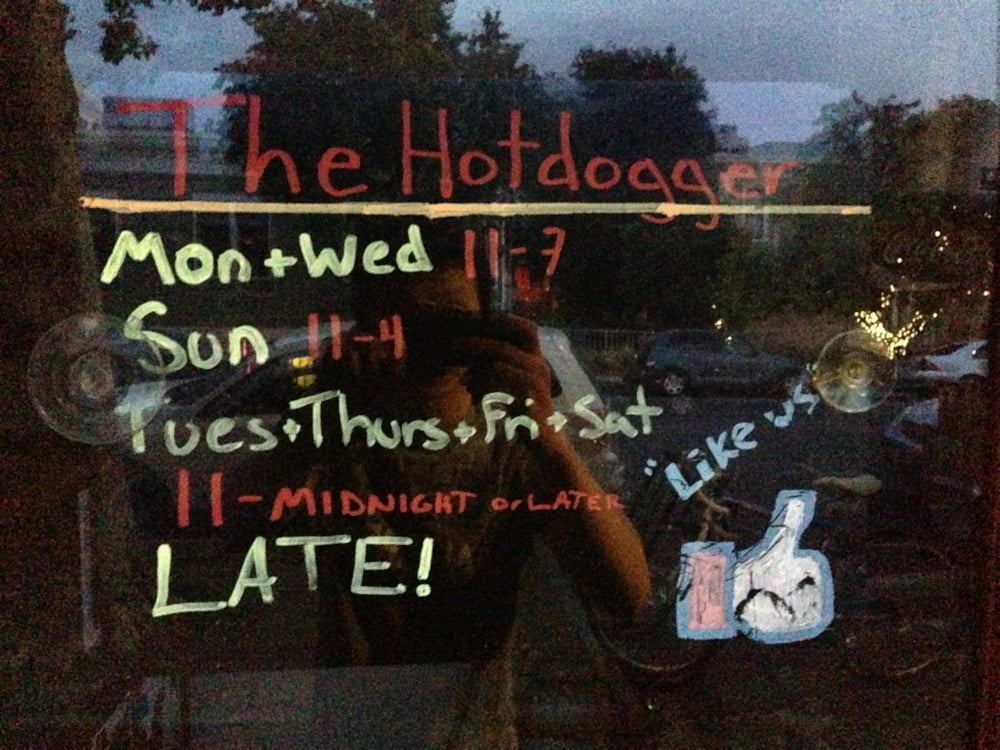 The Hotdogger
Mon+Wed 11-7
Sun 11-4
Tues+Thurs+Fri+Sat
11-MIDNIGHT or LATER
LATE!
"Like us"